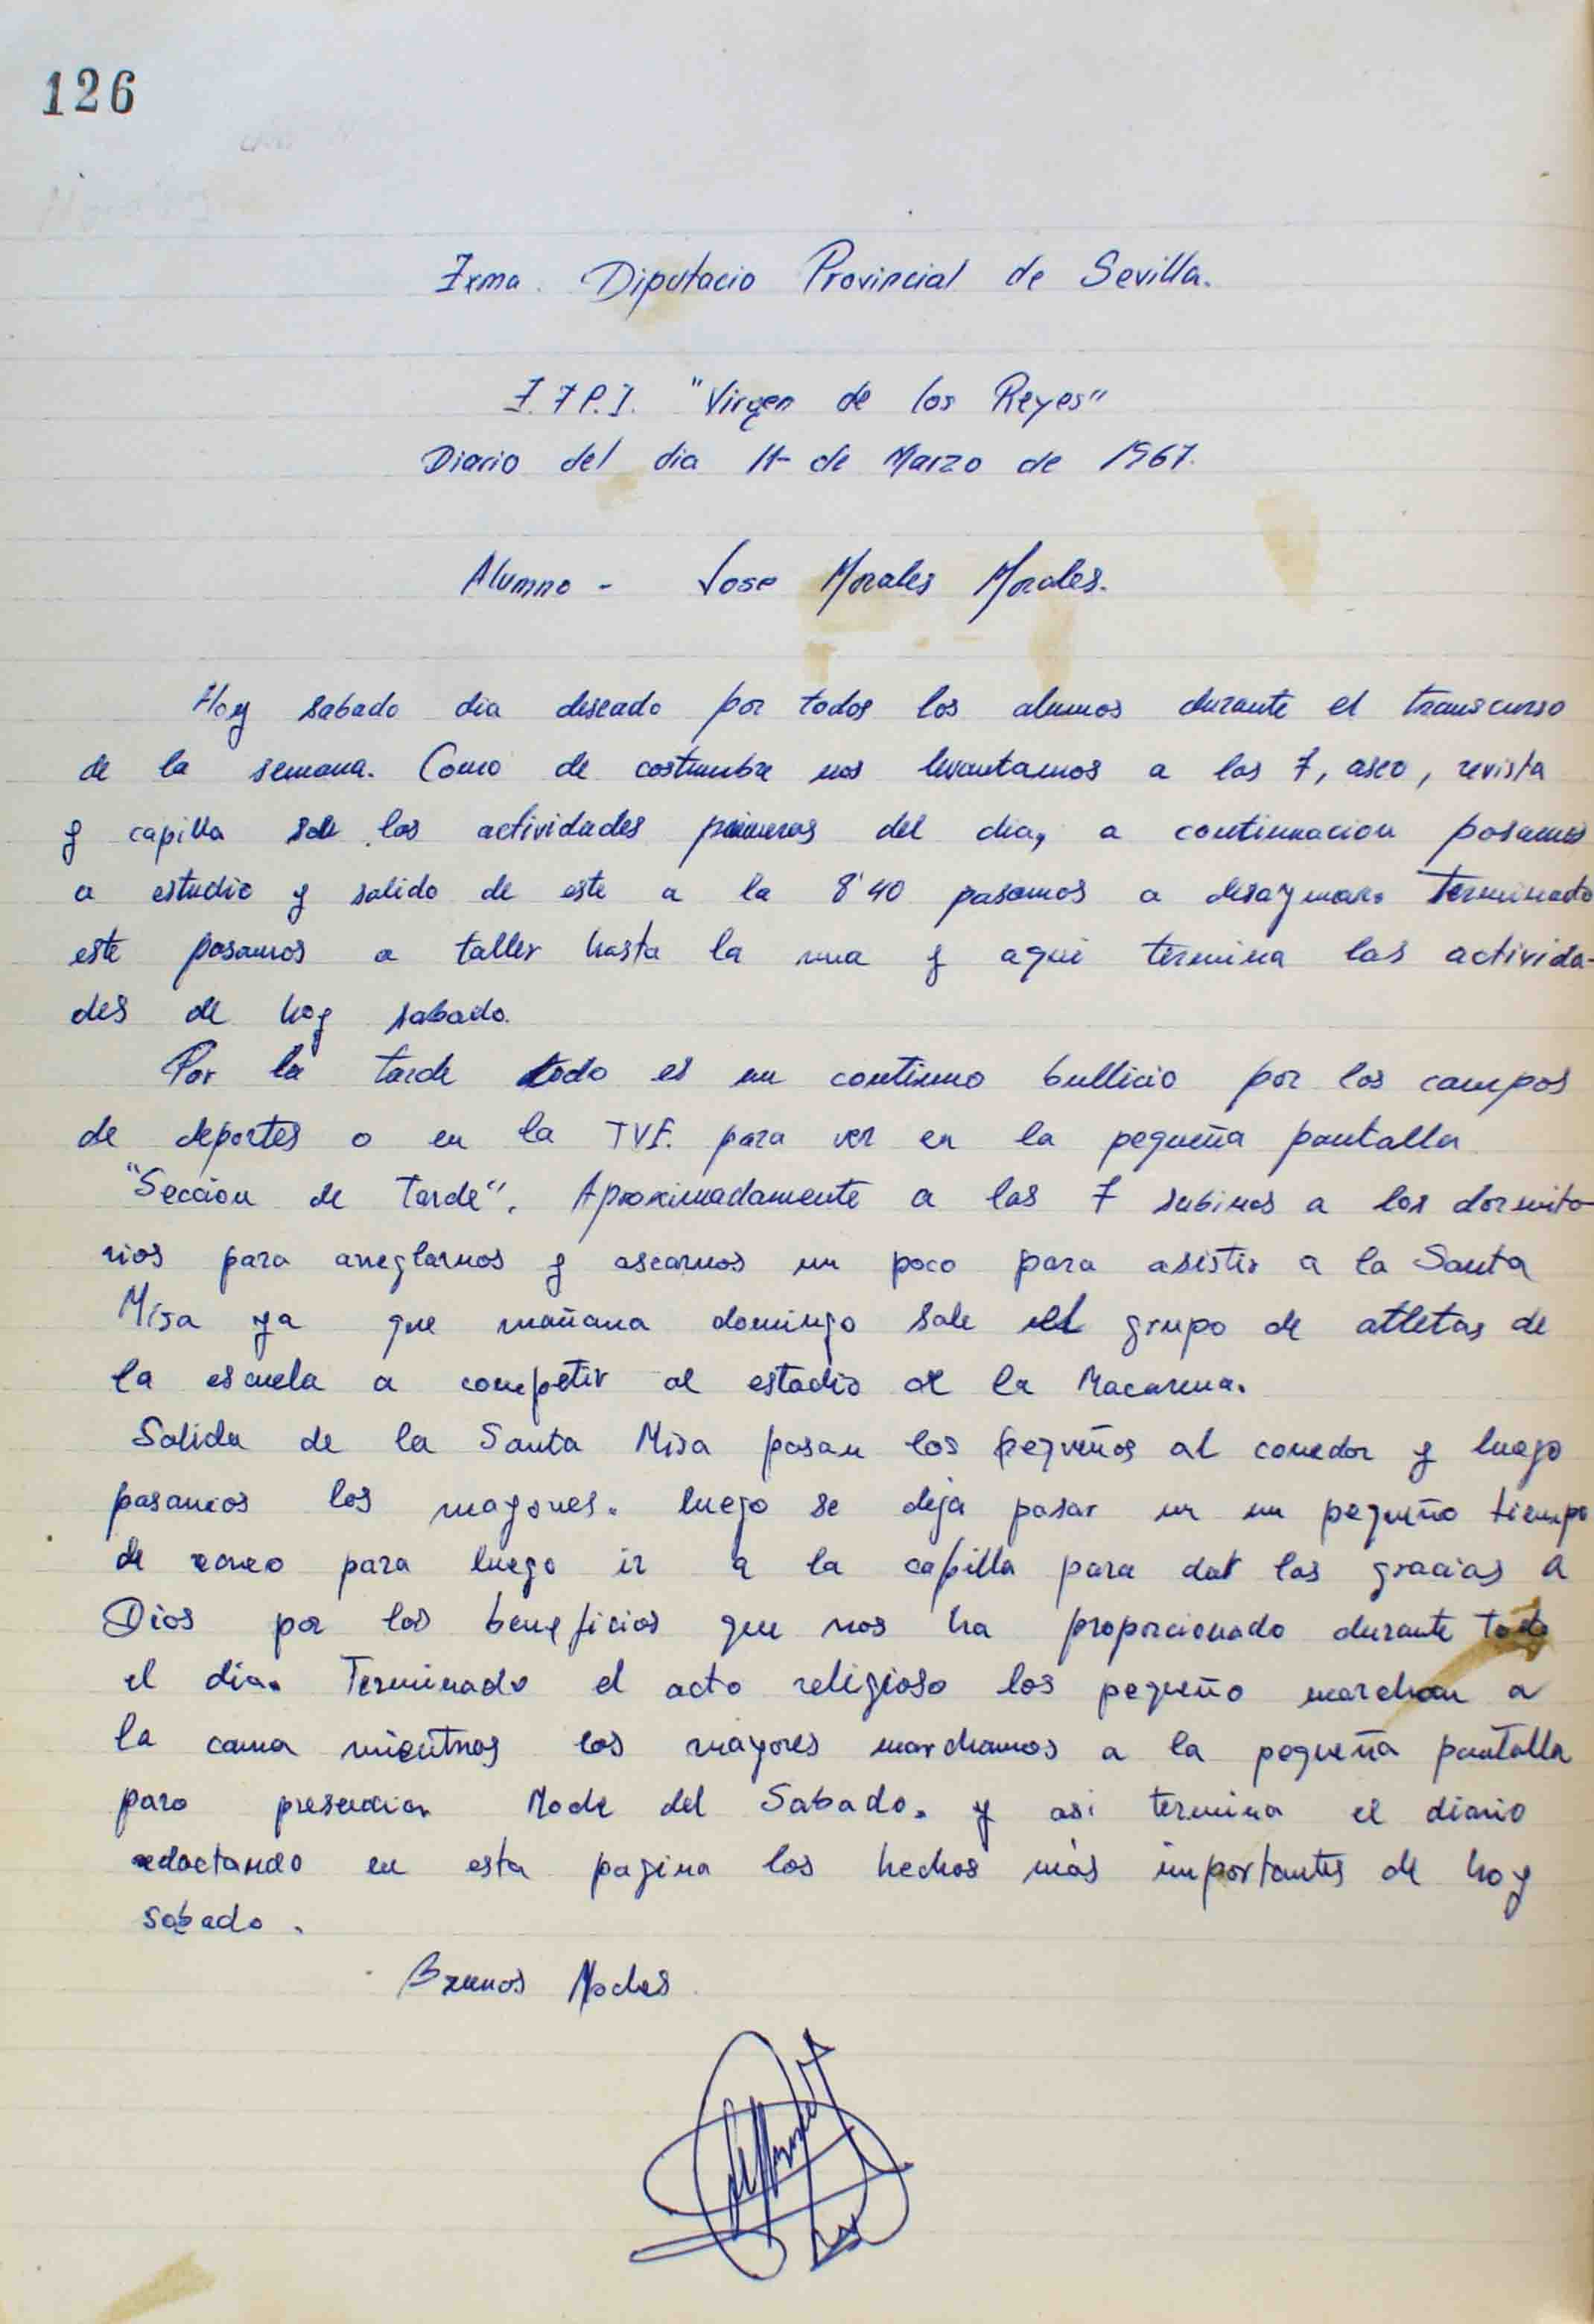 126
Exma. Diputacio Provincial de Sevilla.
I.F.P.I. "Virgen de los Reyes"
Diario del dia 11 de Marzo de 1967.
Alumno - Jose Morales Morales.
Hoy sabado dia deseado por todos los alumnos durante el transcurso
de la semana. Como de costumbre nos levantamos a las 7, aseo, revista
y capilla las actividades primeras del dia, a continuacion pasamos
a estudio y salido de este a la 8'40 pasamos a desayunar. Terminado
este pasamos a taller hasta la una y aqui termina las activida-
des de hoy sabado.
Por la tarde todo es un continuo bullicio por los campos
de deportes o en la TVE. para ver en la pequeña pantalla
"Seccion de Tarde". Aproximadamente a las 7 subimos a los dormito
rios para arreglarnos y asearnos un poco para asistir a la Santa
Misa ya que mañana domingo sale el grupo de atletas de
la escuela a competir al estadio de la Macarena.
Salida de la Santa Misa pasan los pequeños al comedor y luego
pasamos los mayores. luego se deja pasar un pequeño tiempo
de recreo para luego ir a la capilla para dar las gracias a
Dios por los beneficios que nos ha proporcionado durante todo
el dia. Terminado el acto religioso los pequeño marchan a
la cama mientras los mayores marchamos a la pequeña pantalla
para presenciar Noche del Sabado. y asi termina el diario
redactando en esta pagina los hechos más importantes de hoy
sabado.
Buenos Noches